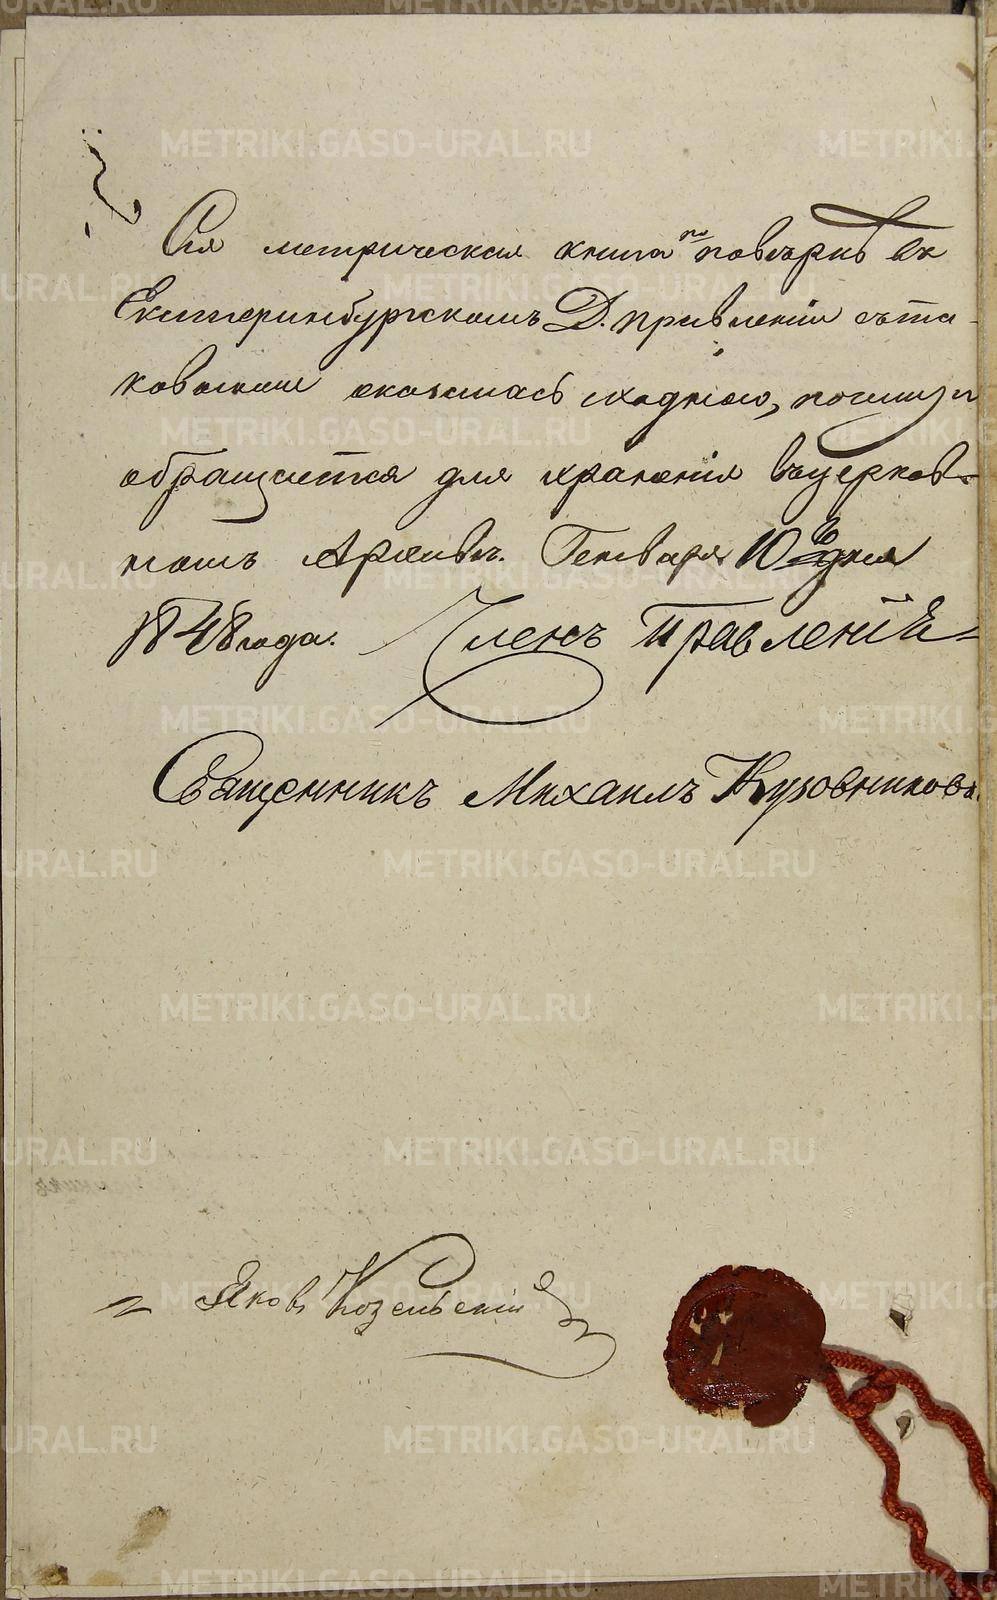 Сія метрическая книга по повѣркѣ въ
Екатеринбургскомъ Д. правленіи съ та-
ковыми оказалась сходною, почему и
обращается для храненія въ церков-
номъ Архивѣ. Генваря 10 го дня
1848 года. Членъ Правленія
Священникъ Михаилъ
Яковъ Козельскій
METRIKI.GASO-URAL.RU